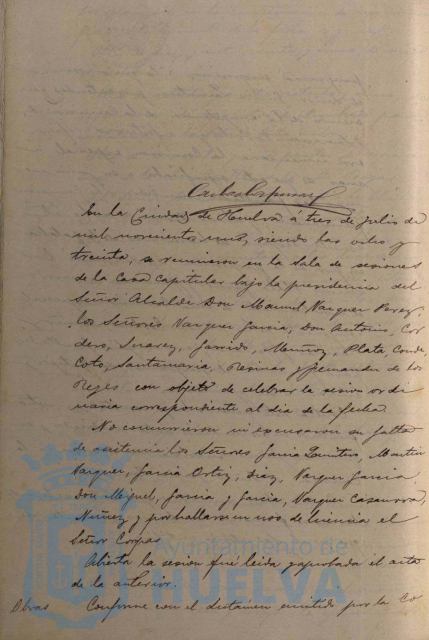 En la Ciudad de Huelva á tres de Julio de
mil novecientos uno, siendo las ocho y
treinta, se reunieron en la Sala de sesiones
de la Casa Capitular bajo la presidencia del
Señor Alcalde Don Manuel Vazquez Perez,
los Señores Vazquez Garcia, Don Antonio, Cor
dero, Suarez, Garrido, Muñoz, Plata, Conde,
Coto, Santamaria, Resinas y Fernandez de los
Reyes con objeto de celebrar la sesion ordi
naria correspondiente al dia de la fecha.
No concurrieron ni excusaron su falta
de asistencia los Señores Garcia Martin
Vazquez, Garcia Ortiz, Diaz, Vazquez Garcia,
Don Miguel, Garcia y Garcia, Vazquez
Nuñez y por hallarse en uso de licencia el
Señor Corpas
Abierta la sesion fué leida y aprobada el acta
de la anterior.
Obras Conforme con el dictamen emitido por la Co
Ayuntamiento de
HUELVA